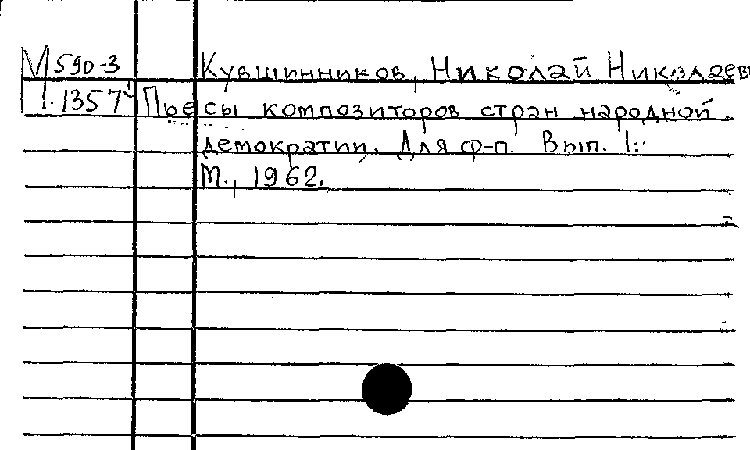 М590-3 Кувшинников, Николай Николаеви
П.1357 Пьесы композиторов стран народной
демократии. Для ф-п. Вып. 1.
М., 1962.